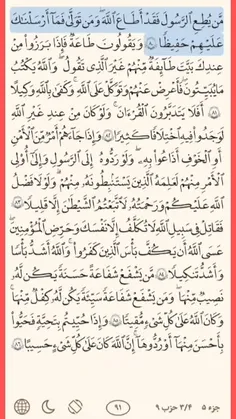 مَّن يُطِعِ ٱلرَّسُولَ فَقَدْ أَطَاعَ ٱللَّهَ وَمَن تَوَلَّىٰ فَمَآ أَرْسَلْنَٰكَ
عَلَيْهِمْ حَفِيظًا ۝٨٠ وَيَقُولُونَ طَاعَةٌ فَإِذَا بَرَزُوا۟ مِنْ
عِندِكَ بَيَّتَ طَآئِفَةٌ مِّنْهُمْ غَيْرَ ٱلَّذِى تَقُولُ وَٱللَّهُ يَكْتُبُ
مَا يُبَيِّتُونَ فَأَعْرِضْ عَنْهُمْ وَتَوَكَّلْ عَلَى ٱللَّهِ وَكَفَىٰ بِٱللَّهِ وَكِيلًا
۝٨١ أَفَلَا يَتَدَبَّرُونَ ٱلْقُرْءَانَ وَلَوْ كَانَ مِنْ عِندِ غَيْرِ ٱللَّهِ
لَوَجَدُوا۟ فِيهِ ٱخْتِلَٰفًا كَثِيرًا ۝٨٢ وَإِذَا جَآءَهُمْ أَمْرٌ مِّنَ ٱلْأَمْنِ
أَوِ ٱلْخَوْفِ أَذَاعُوا۟ بِهِۦ وَلَوْ رَدُّوهُ إِلَى ٱلرَّسُولِ وَإِلَىٰٓ أُو۟لِى
ٱلْأَمْرِ مِنْهُمْ لَعَلِمَهُ ٱلَّذِينَ يَسْتَنۢبِطُونَهُۥ مِنْهُمْ وَلَوْلَا فَضْلُ
ٱللَّهِ عَلَيْكُمْ وَرَحْمَتُهُۥ لَٱتَّبَعْتُمُ ٱلشَّيْطَٰنَ إِلَّا قَلِيلًا ۝٨٣
فَقَٰتِلْ فِى سَبِيلِ ٱللَّهِ لَا تُكَلَّفُ إِلَّا نَفْسَكَ وَحَرِّضِ ٱلْمُؤْمِنِينَ
عَسَى ٱللَّهُ أَن يَكُفَّ بَأْسَ ٱلَّذِينَ كَفَرُوا۟ وَٱللَّهُ أَشَدُّ بَأْسًا
وَأَشَدُّ تَنكِيلًا ۝٨٤ مَّن يَشْفَعْ شَفَٰعَةً حَسَنَةً يَكُن لَّهُۥ
نَصِيبٌ مِّنْهَا وَمَن يَشْفَعْ شَفَٰعَةً سَيِّئَةً يَكُن لَّهُۥ كِفْلٌ مِّنْهَا
وَكَانَ ٱللَّهُ عَلَىٰ كُلِّ شَىْءٍ مُّقِيتًا ۝٨٥ وَإِذَا حُيِّيتُم بِتَحِيَّةٍ فَحَيُّوا۟
بِأَحْسَنَ مِنْهَآ أَوْ رُدُّوهَآ إِنَّ ٱللَّهَ كَانَ عَلَىٰ كُلِّ شَىْءٍ حَسِيبًا ۝٨٦
جزء ۵ ۳/۴ حزب ۹
۹۱